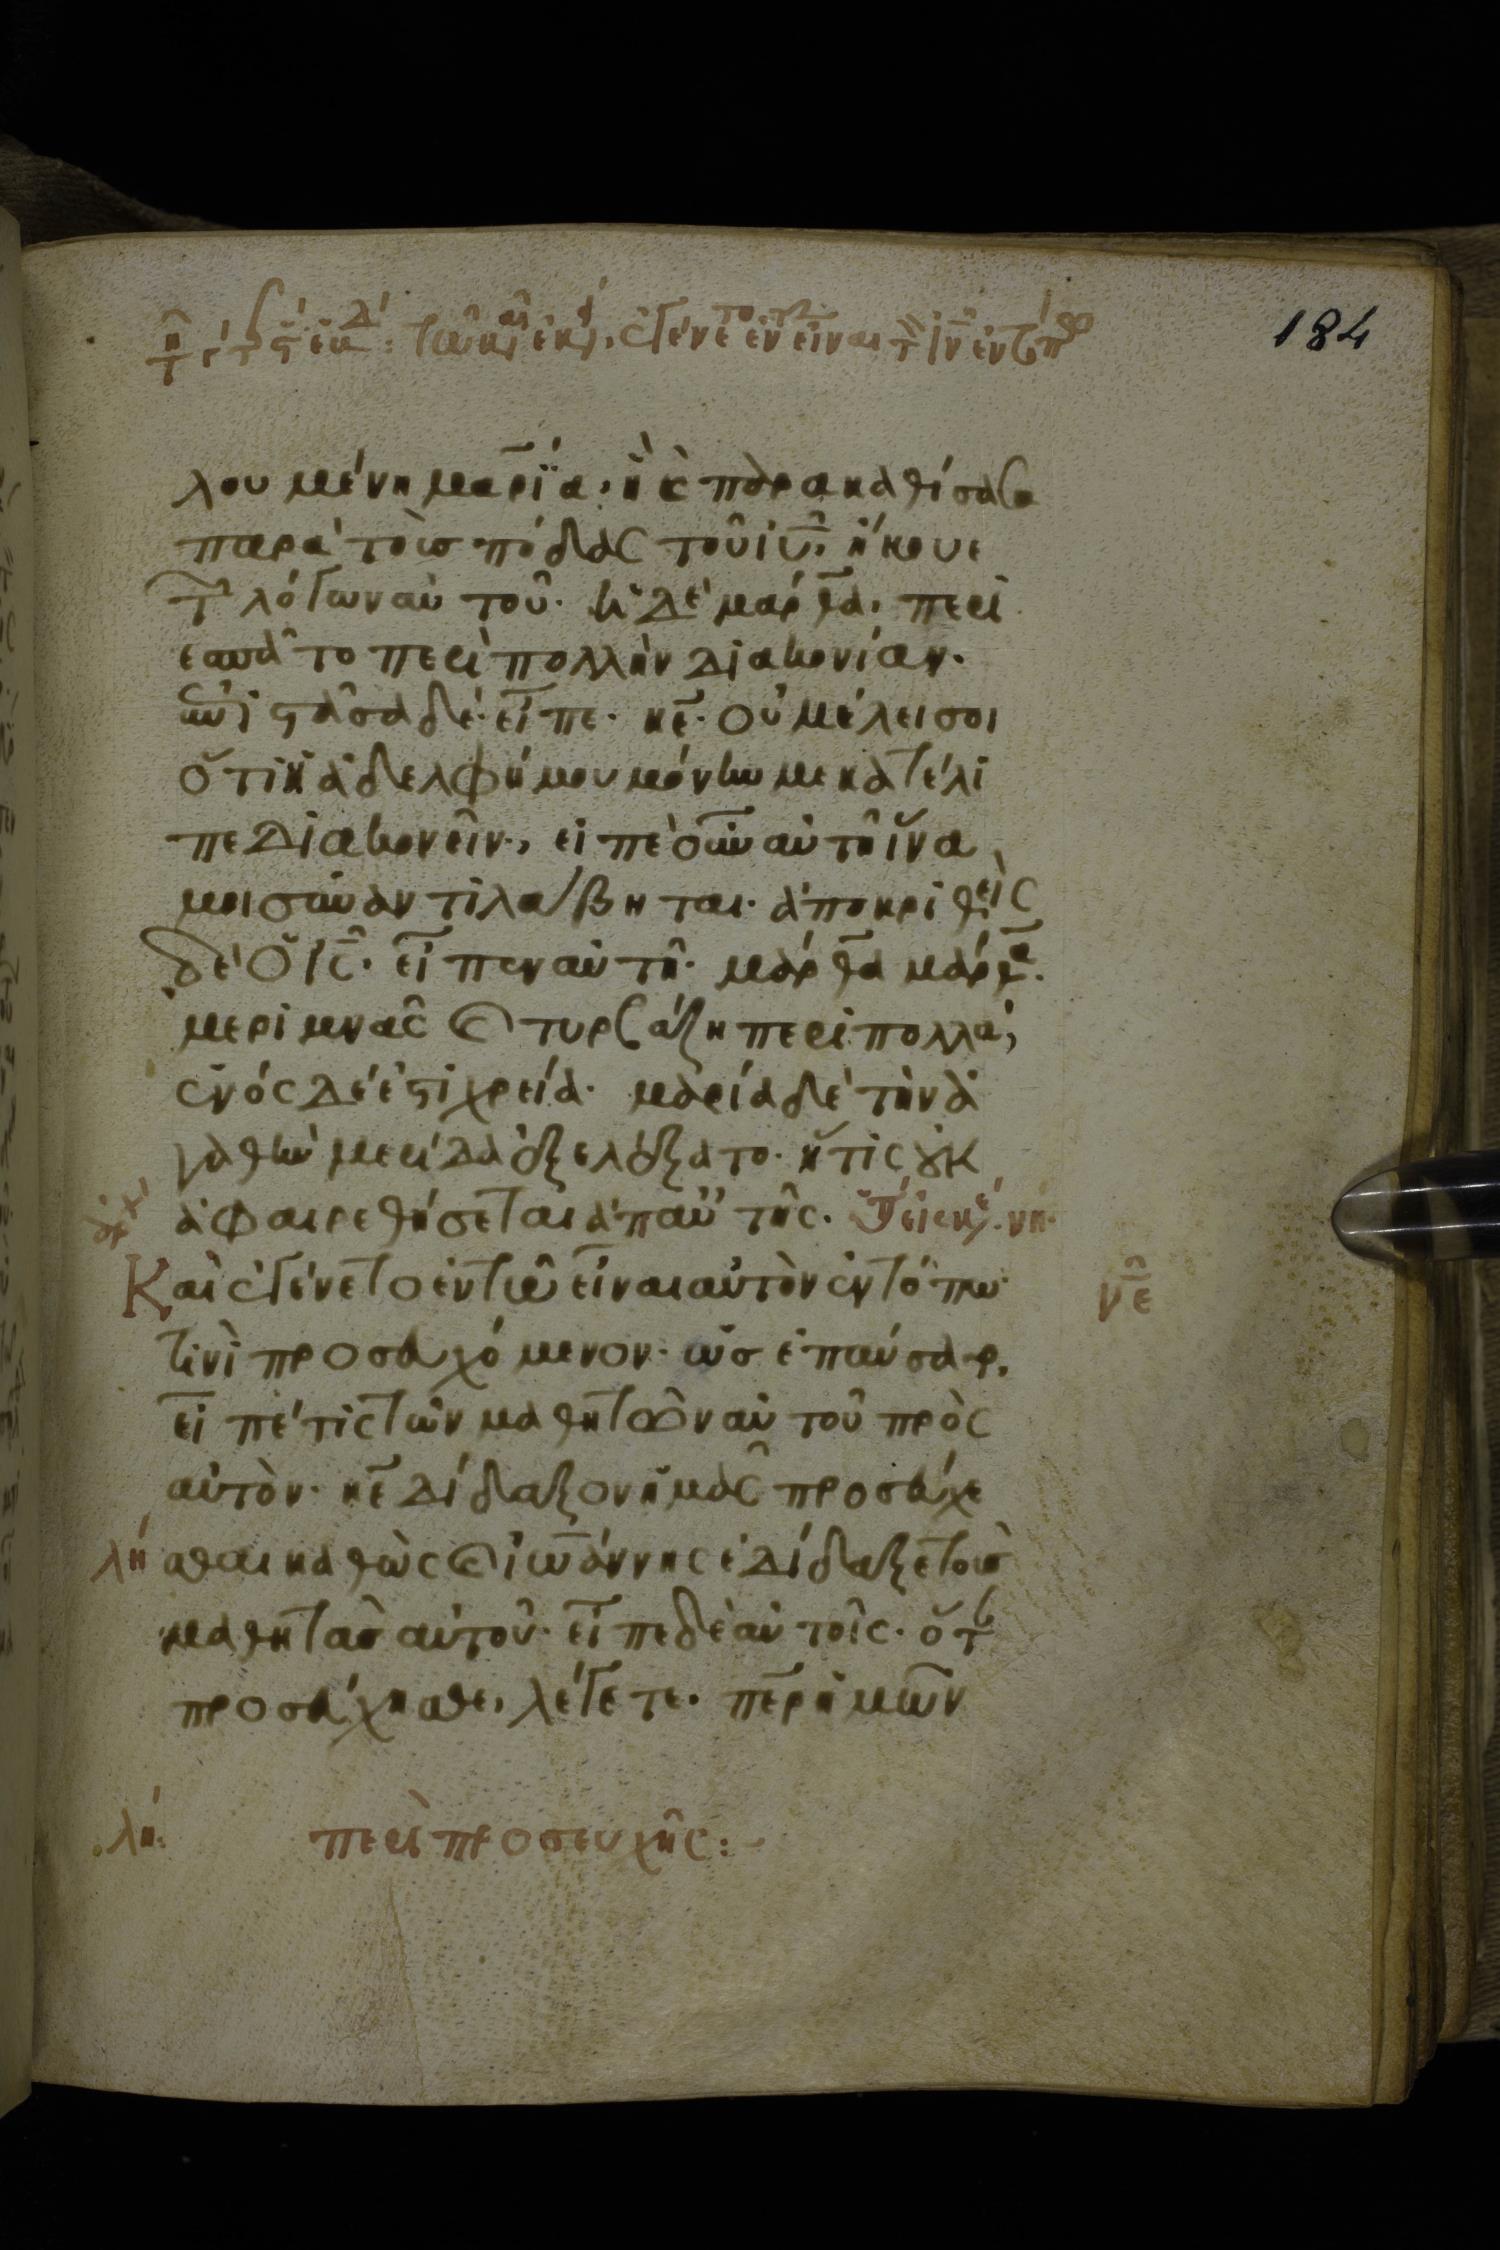 184
λουμένη μαρΐα, ἣ κ παρακαθίσασα
παρὰ τοὺσ πόδας τοῦ ιυ, ἤκουε
τ λόγων αὐτοῦ. ἡ δὲ μάρθα, περι
εσπᾶτο περὶ πολλὴν διακονίαν.
ἐπιστᾶσα δὲ. εἶπε. κε. οὐ μέλει σοι
ὅτι ἡ ἀδελφή μου μόνην με κατέλι
πε διακονεῖν, εἰπὲ οὖν αὐτῆ ἵνα
μοι συναντιλάβηται. ἀποκριθεὶς
δὲ ὁ ις. εἶπεν αὐτῆ. μάρθα μάρθα.
μεριμνᾶς καὶ τυρβάζη περὶ πολλά,
ἑνός δέ ἐστι χρεία. μαρία δὲ τὴν ἀ
γαθὴν μερίδα ἐξελέξατο. ἥτις οὐκ
ἀφαιρεθήσεται ἀπ αὐτῆς.
Καὶ ἐγένετο ἐν τῶ εἶναι αὐτὸν ἐν τόπω
τινὶ προσευχόμενον. ὡσ ἐπαύσατο,
εἶπέ τις τῶν μαθητῶν αὐτοῦ πρὸς
αὐτὸν. κε δίδαξον ἡμᾶς προσεύχε
λη σθαι καθὼς καὶ ἰωάννης ἐδίδαξε τοὺσ
μαθητὰσ αὐτοῦ. εἶπε δὲ αὐτοῖς. ὅταν
προσεύχησθε, λέγετε. περ ἡμῶν
λη περὶ προσευχῆς: